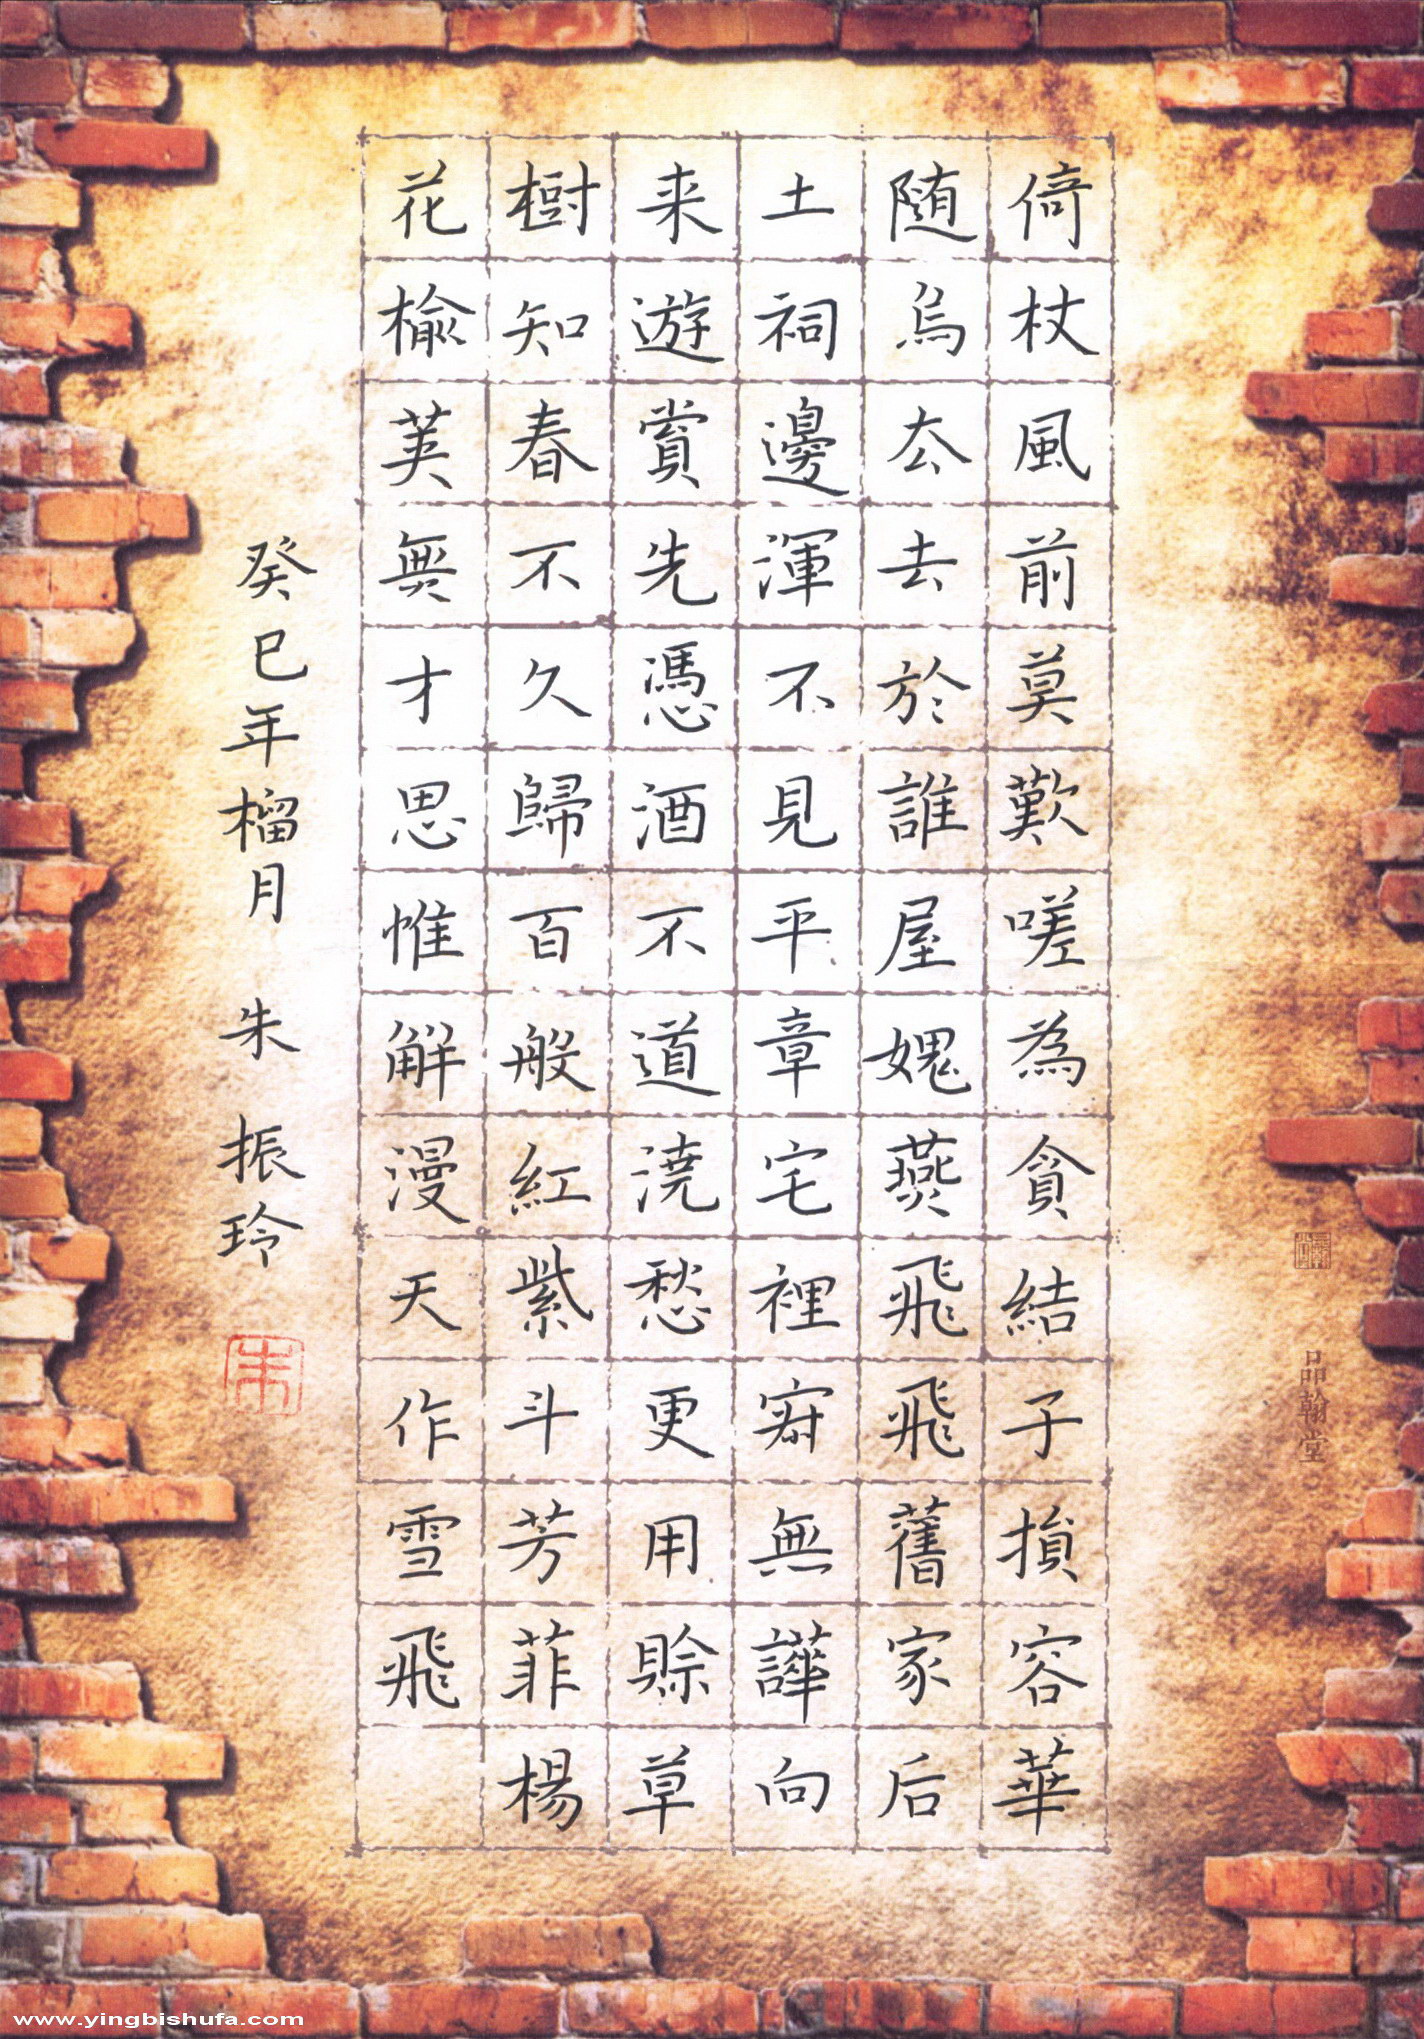 倚杖風前莫歎嗟為貪結子損容華
随烏厺去於誰屋媿燕飛飛舊家后
土祠邊渾不見平章宅裡寂無譁向
来遊賞先憑酒不道澆愁更用賒草
樹知春不久歸百般紅紫斗芳菲楊
花榆荚無才思惟解漫天作雪飛
癸巳年榴月 朱振玲
朱
品翰堂
www.yingbishufa.com